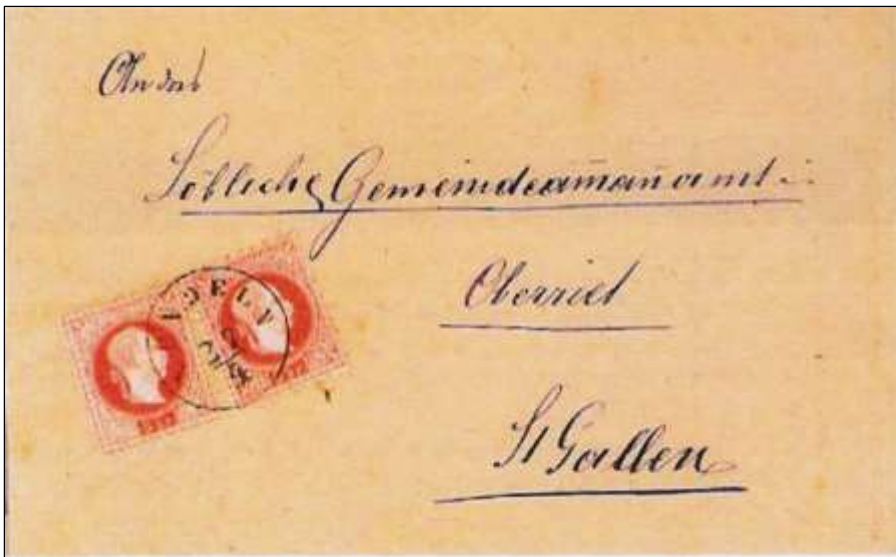 An das
Löbliche Gemeindeam̅an̅amt
Oberriet
St Gallen